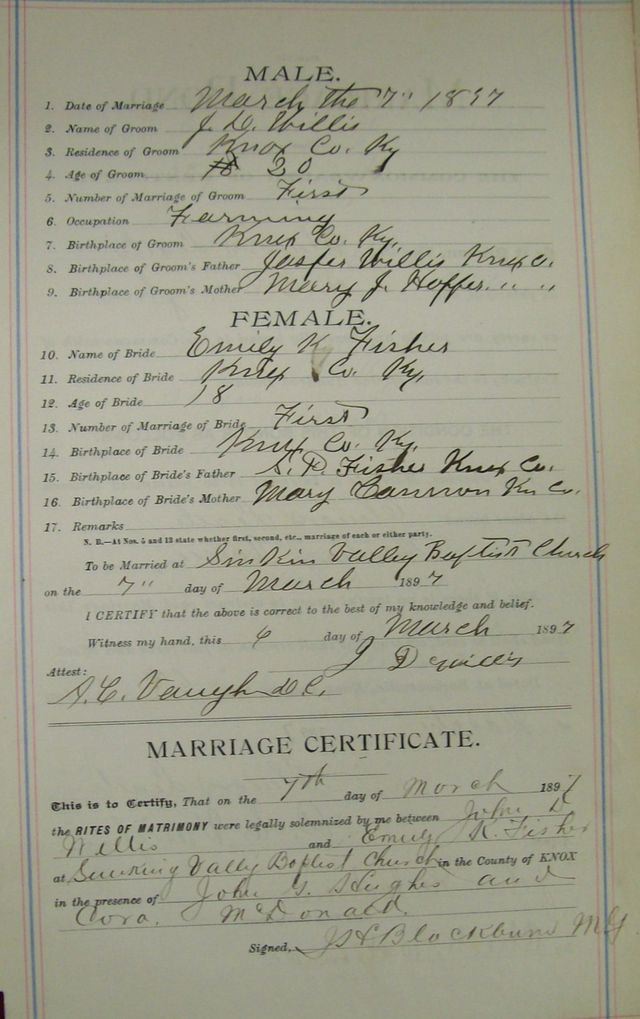 MALE.
1. Date of Marriage March the 7" 1897
2. Name of Groom J. D. Willis
3. Residence of Groom Knox Co. Ky
4. Age of Groom 20
5. Number of Marriage of Groom First
6. Occupation Farming
7. Birthplace of Groom Knox Co. Ky.
8. Birthplace of Groom's Father Jasper Willis Knox Co.
9. Birthplace of Groom's Mother Mary J. " "
FEMALE.
10. Name of Bride Emily K Fisher
11. Residence of Bride Knox Co. Ky.
12. Age of Bride 18
13. Number of Marriage of Bride First
14. Birthplace of Bride Knox Co. Ky.
15. Birthplace of Bride's Father S. P. Fisher Knox Co.
16. Birthplace of Bride's Mother Mary Cannon Kn Co.
17. Remarks
N. B.—At Nos. 5 and 13 state whether first, second, etc., marriage of each or either party.
To be Married at Sinkin Valley Baptist Church
on the 7" day of March 1897
I CERTIFY that the above is correct to the best of my knowledge and belief.
Witness my hand, this 6 day of March 1897
J D Willis
Attest:
A. C. Vaughn D.C.
MARRIAGE CERTIFICATE.
This is to Certify, That on the 7th day of March 1897
the RITES OF MATRIMONY were legally solemnized by me between John D
Willis and Emily K. Fisher
at Sinking Vally Baptist Church in the County of KNOX
in the presence of John G. Hughes and
Cora. McDonald.
Signed, Blackburn M G